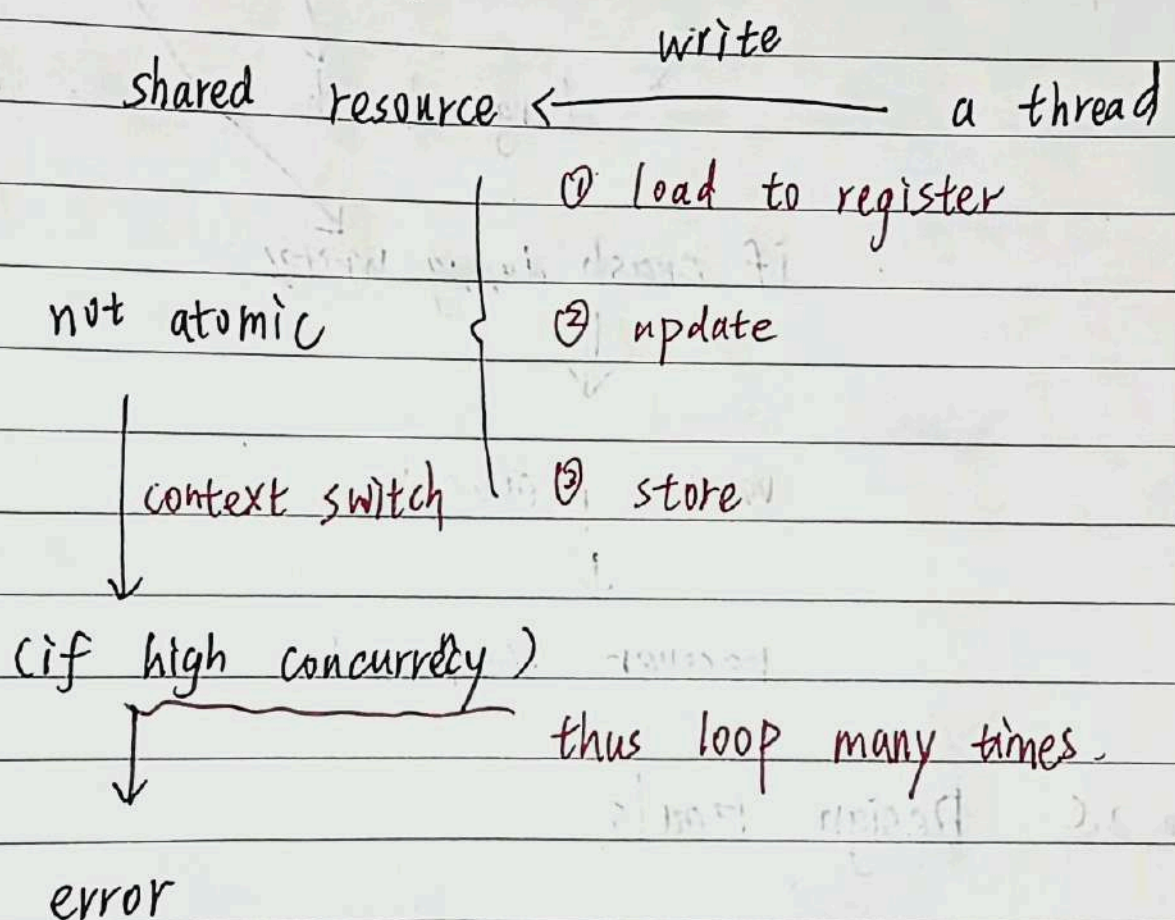 write
shared resource a thread
① load to register
not atomic ② update
context switch ③ store
(if high concurrecy)
thus loop many times.
error